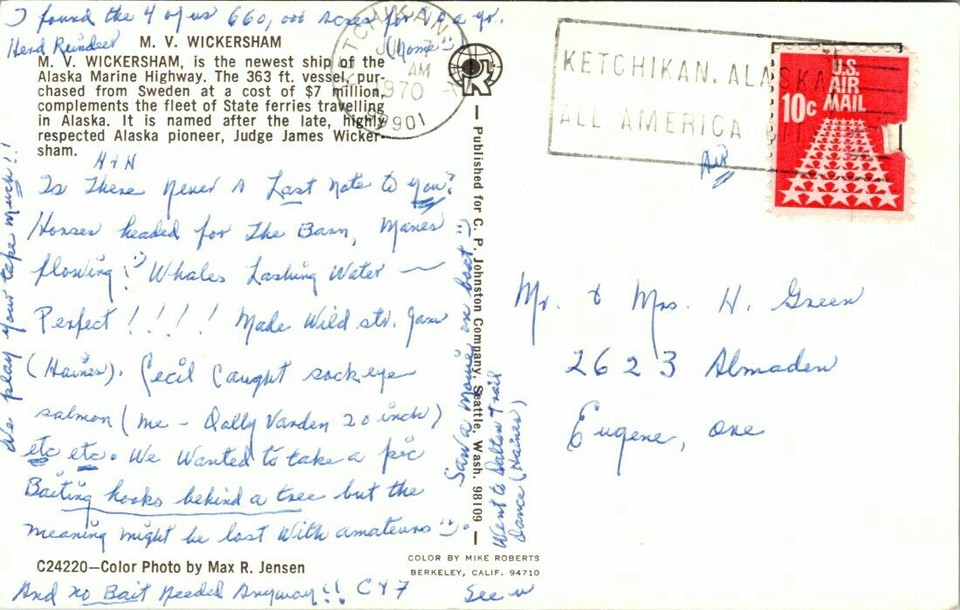 I found the 4 of us 660,000 acres for 10¢ a yr.
Herd Reindeer (Home)
M. V. WICKERSHAM
M. V. WICKERSHAM, is the newest ship of the
Alaska Marine Highway. The 363 ft. vessel, pur-
chased from Sweden at a cost of $7 million,
complements the fleet of State ferries travelling
in Alaska. It is named after the late, highly
respected Alaska pioneer, Judge James Wicker-
sham.
H + H
Is There Never A Last Note to you?
Horses headed for The Barn, Manes
flowing! Whales Lashing Water —
Perfect !!!! Made Wild str. Jam
(Haines). Cecil Caught sockeye
salmon (me - Dolly Varden 20 inch)
etc etc. We Wanted to take a pic
Baiting hooks behind a tree but the
meaning might be lost With amateurs.
C24220—Color Photo by Max R. Jensen
And no Bait Needed Anyway!! C + 7
We play your tape much!!
Saw a Movie on boat
Went to Dalton Trail
Dance (Haines)
See u
Published for C. P. Johnston Company, Seattle, Wash. 98109
COLOR BY MIKE ROBERTS
BERKELEY, CALIF. 94710
KETCHIKAN
AM
1970
99901
KETCHIKAN, ALASKA
ALL AMERICA CITY
U.S.
AIR
MAIL
10c
Air
Mr. & Mrs. H. Green
2623 Almaden
Eugene, Ore